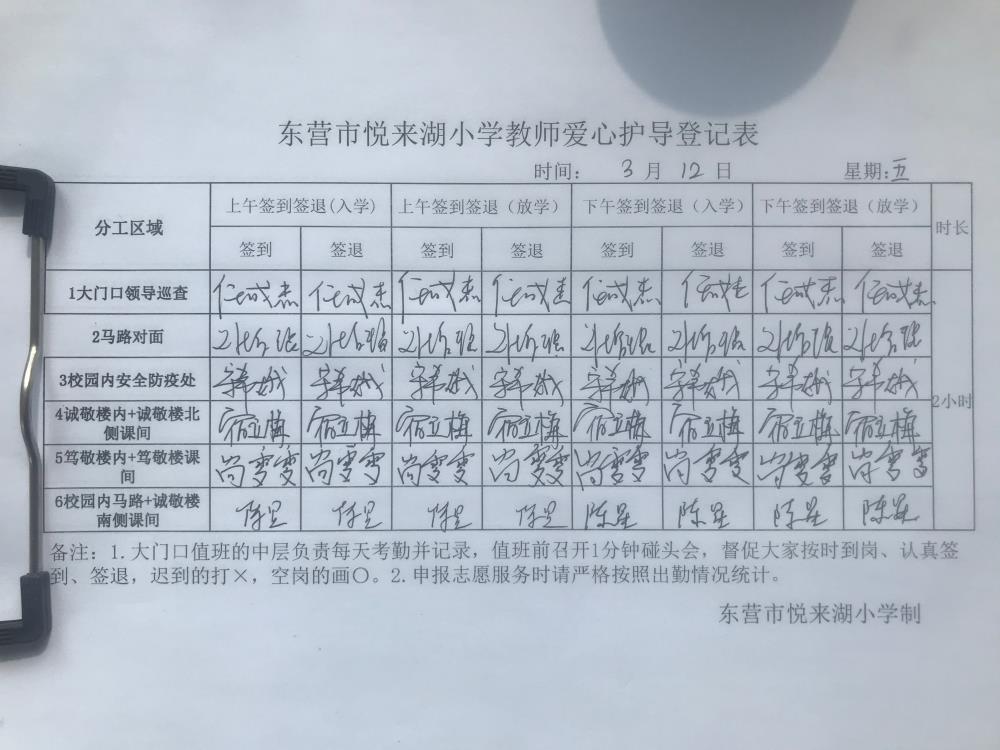 东营市悦来湖小学教师爱心护导登记表
时间： 3月12日 星期：五
分工区域 上午签到签退(入学) 上午签到签退（放学） 下午签到签退（入学） 下午签到签退（放学） 时长
签到 签退 签到 签退 签到 签退 签到 签退
1大门口领导巡查 任成杰 任成杰 任成杰 任成杰 任成杰 任成杰 任成杰 任成杰
2马路对面
3校园内安全防疫处
2小时
4诚敬楼内+诚敬楼北
侧课间 宿立梅 宿立梅 宿立梅 宿立梅 宿立梅 宿立梅 宿立梅 宿立梅
5笃敬楼内+笃敬楼课
间 尚雯雯 尚雯雯 尚雯雯 尚雯雯 尚雯雯 尚雯雯 尚雯雯 尚雯雯
6校园内马路+诚敬楼
南侧课间 陈星 陈星 陈星 陈星 陈星 陈星 陈星 陈星
备注：1.大门口值班的中层负责每天考勤并记录，值班前召开1分钟碰头会，督促大家按时到岗、认真签
到、签退，迟到的打×，空岗的画〇。2.申报志愿服务时请严格按照出勤情况统计。
东营市悦来湖小学制